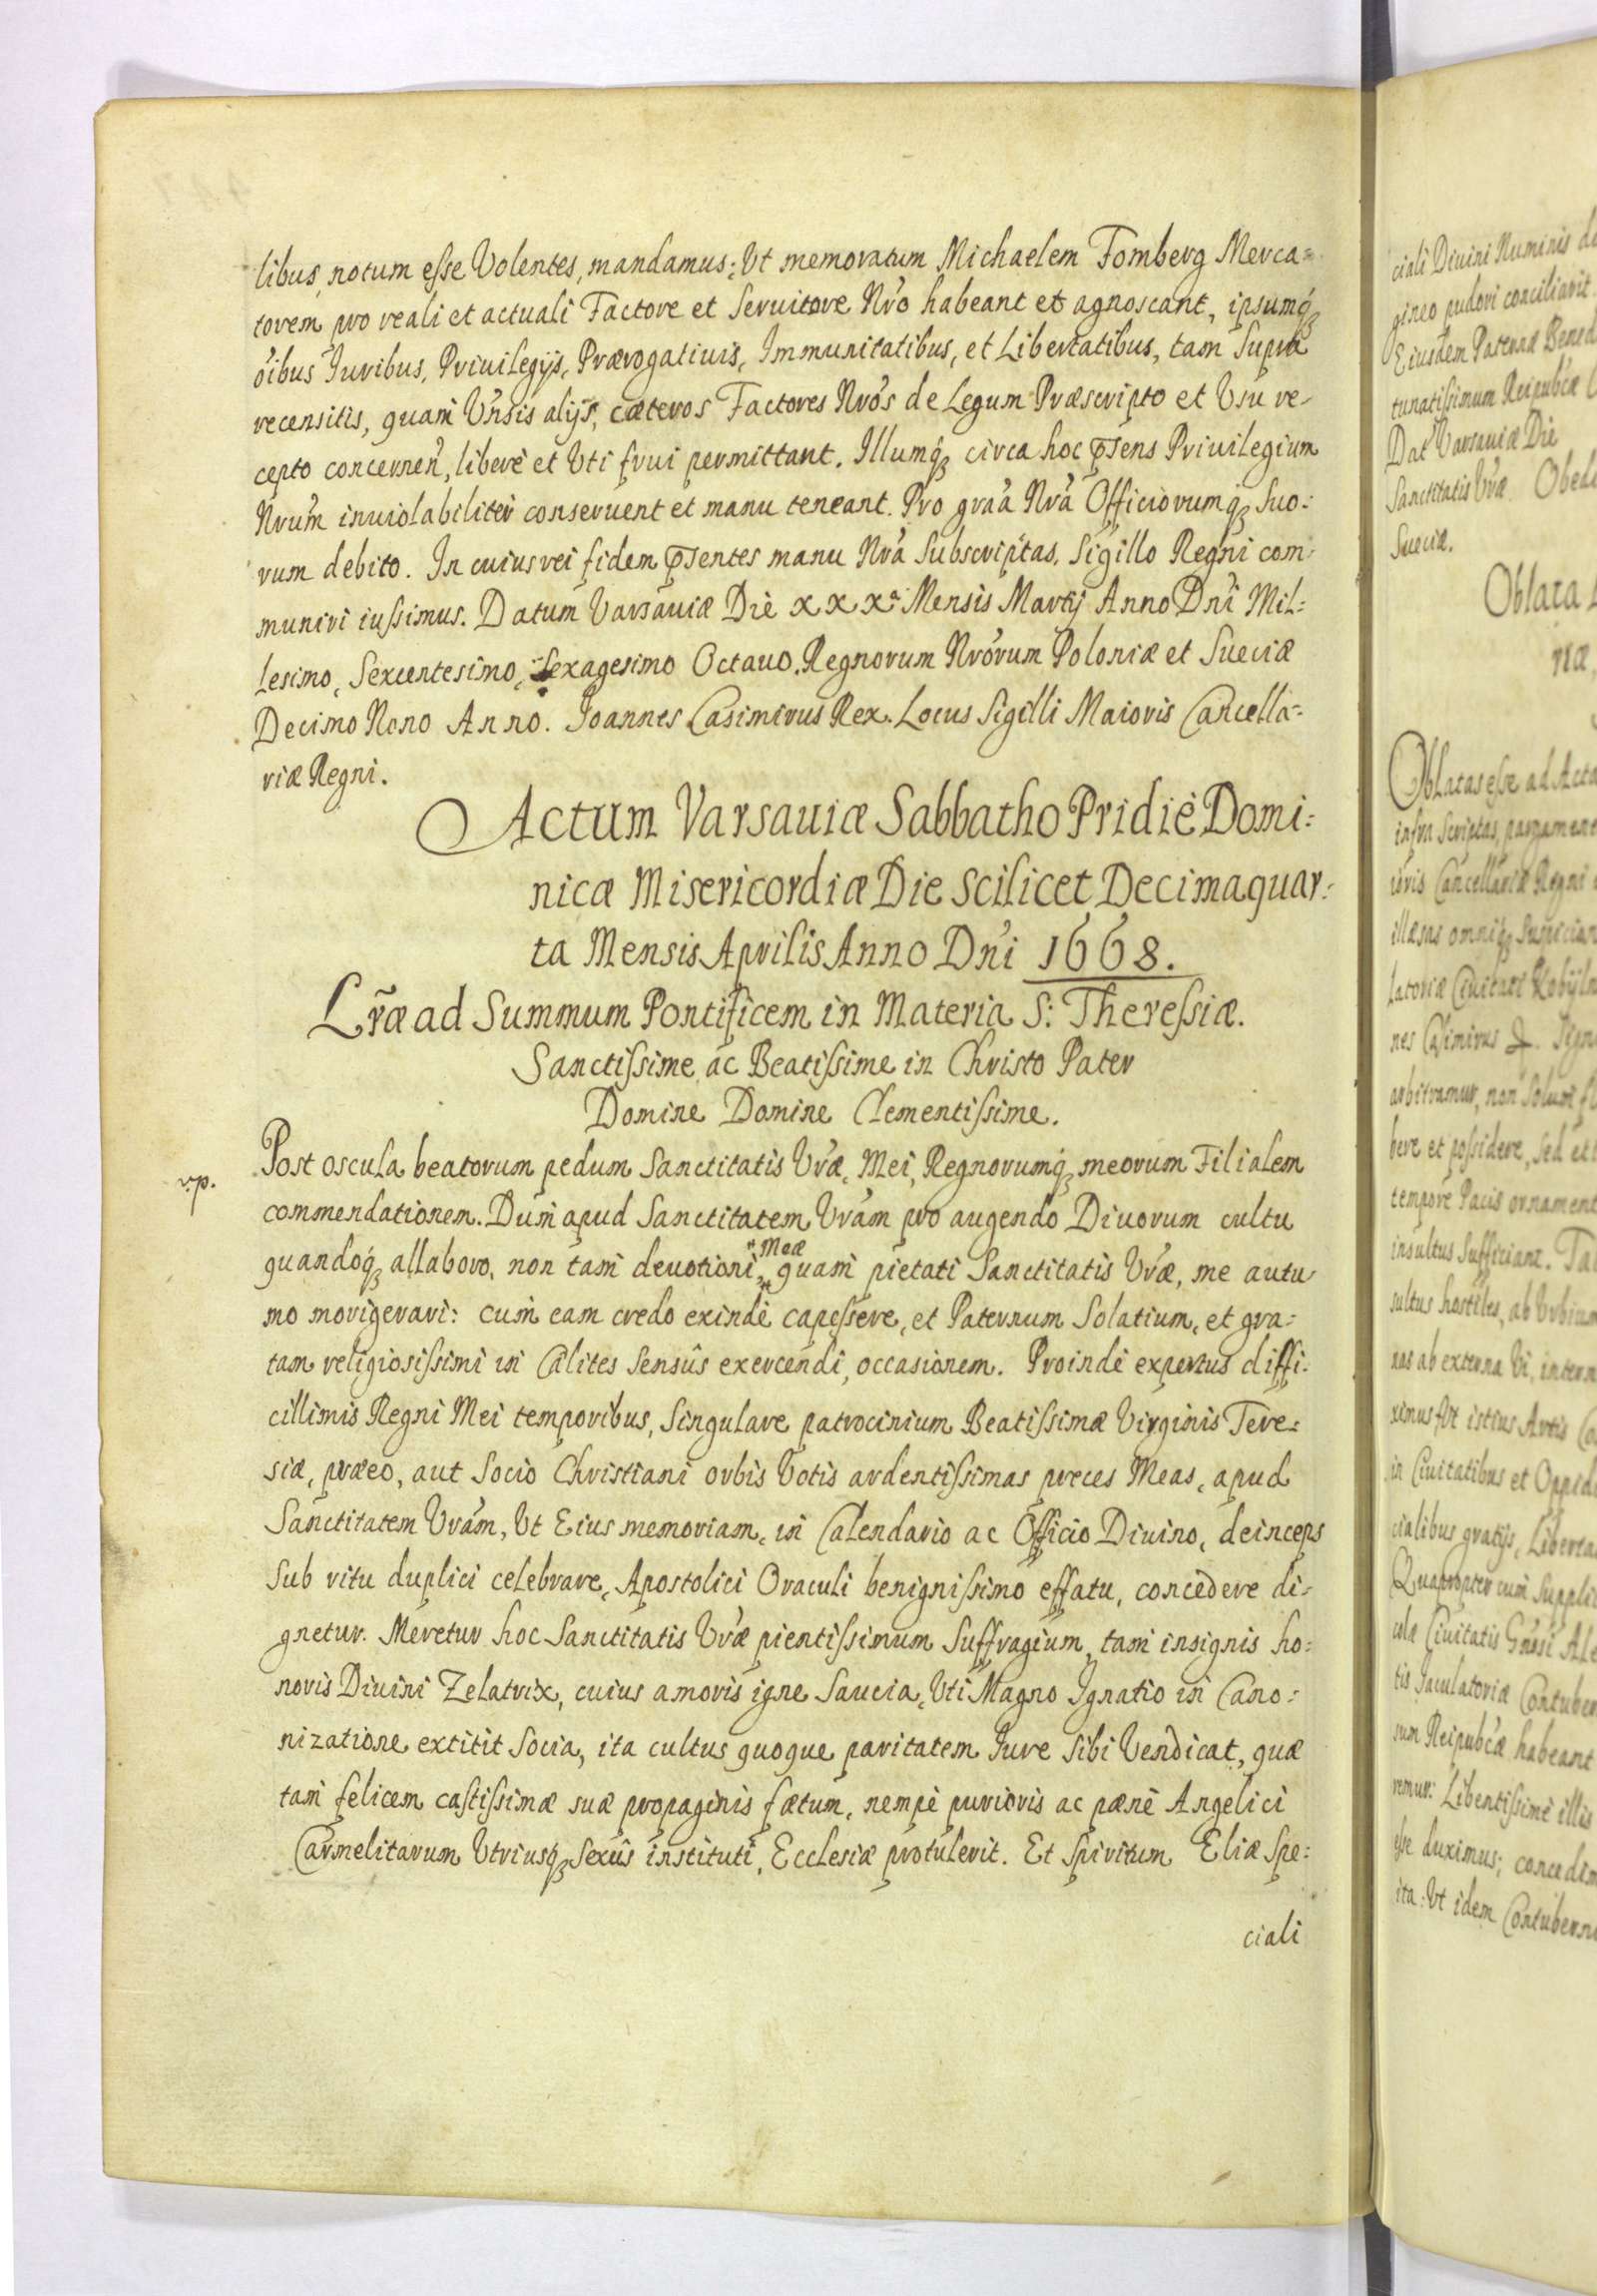 libus, notum esse Volentes, mandamus; Ut memoratum Michaelem Fomberg Merca=
torem pro reali et actuali Factore et Seruitore Nro habeant et agnoscant, ipsumq3
oibus Iuribus, Priuilegijs, Prærogatiuis, Immunitatibus, et Libertatibus, tam Supra
recensitis, quam Vnsis alijs, cæteros Factores Nros de Legum Præscripto et Vsu re-
cepto concernen, liberè et Uti frui permittant. Illumq3 circa hoc psens Priuilegium
Nrum inuiolabiliter conseruent et manu teneant. Pro graa Nra Officiorumq3 Suo:
rum debito. In cuius rei fidem psentes manu Nra Subscriptas, Sigillo Regni com
muniri iussimus. Datum Varsauiæ Die XXXa Mensis Martij Anno Dni Mil:
lesimo, Sexcentesimo, Sexagesimo Octauo. Regnorum Nrorum Poloniæ et Sueciæ
Decimo Nono Anno. Joannes Casimirus Rex. Locus Sigilli Maioris Cancella=
riæ Regni.
Actum Varsauiæ Sabbatho Pridiè Domi:
nicæ Misericordiæ Die scilicet Decimaquar:
ta Mensis Aprilis Anno Dni 1668.
Lræ ad Summum Pontificem in Materia S: Theressiæ.
Sanctissime ac Beatissime in Christo Pater
Domine Domine Clementissime.
Post oscula beatorum pedum Sanctitatis Vræ, Mei, Regnorumq3 meorum Filialem
commendationem. Dum apud Sanctitatem Vram pro augendo Diuorum cultu
quandoq3 allaboro, non tam deuotioni Meæ quam pietati Sanctitatis Vræ, me autu
mo morigerari: cum eam credo exindè capessere, et Paternum Solatium, et gra:
tam religiosissimi in Cælites Sensûs exercendi, occasionem. Proindè expertus diffi:
cillimis Regni Mei temporibus, Singulare patrocinium Beatissimæ Virginis Tere:
siæ, præeo, aut Socio Christiani orbis Votis ardentissimas preces Meas, apud
Sanctitatem Vram, Ut Eius memoriam, in Calendario ac Officio Diuino, deinceps
Sub ritu duplici celebrare, Apostolici Oraculi benignissimo effatu, concedere di-
gnetur. Meretur hoc Sanctitatis Vræ pientissimum Suffragium, tam insignis ho:
noris Diuini Zelatrix, cuius amoris igne Saucia, Uti Magno Ignatio in Cano:
nizatione extitit Socia, ita cultus quoque paritatem Iure Sibi Vendicat, quæ
tam felicem castissimæ suæ propaginis fætum, nempè purioris ac pænè Angelici
Carmelitarum Utriusq3 Sexûs instituti, Ecclesiæ protulerit. Et Spiritum Eliæ Spe:
ciali
ciali Diuini Numinis
gineo pudori conciliarit
Eiusdem Paternæ
tunatissimum Reipubcæ
Dat Varsauiæ Die
Sanctitatis Vræ
Sueciæ.
Oblata
riæ
Oblatas esse ad Acta
infra Scriptas
ioris Cancellariæ Regni
illæsas omniq3
latoriæ Ciuitati
nes Casimirus
arbitramur, non Solum
bere et possidere, Sed et
tempore Pacis
insultus Sufficiant.
sultus hostiles, ab
nas ab externa Vi,
ximus, Ut istius Artis
in Ciuitatibus et
cialibus gratijs,
Quapropter cum
colæ Ciuitatis
tis Iaculatoriæ
sum Reipubcæ habeant
remur: Libentissimè illis
esse duximus;
ita: Ut idem